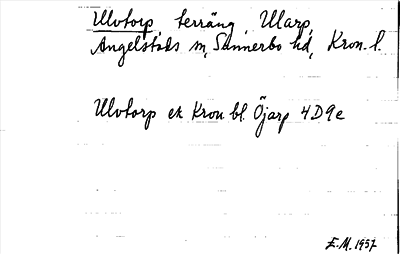 Ulvtorp, terräng, Ularp,
Angelstads sn, Sunnerbo hd, Kron. l.
Ulvtorp ek Kron bl. Öjarp 4D9e
E.M. 1957